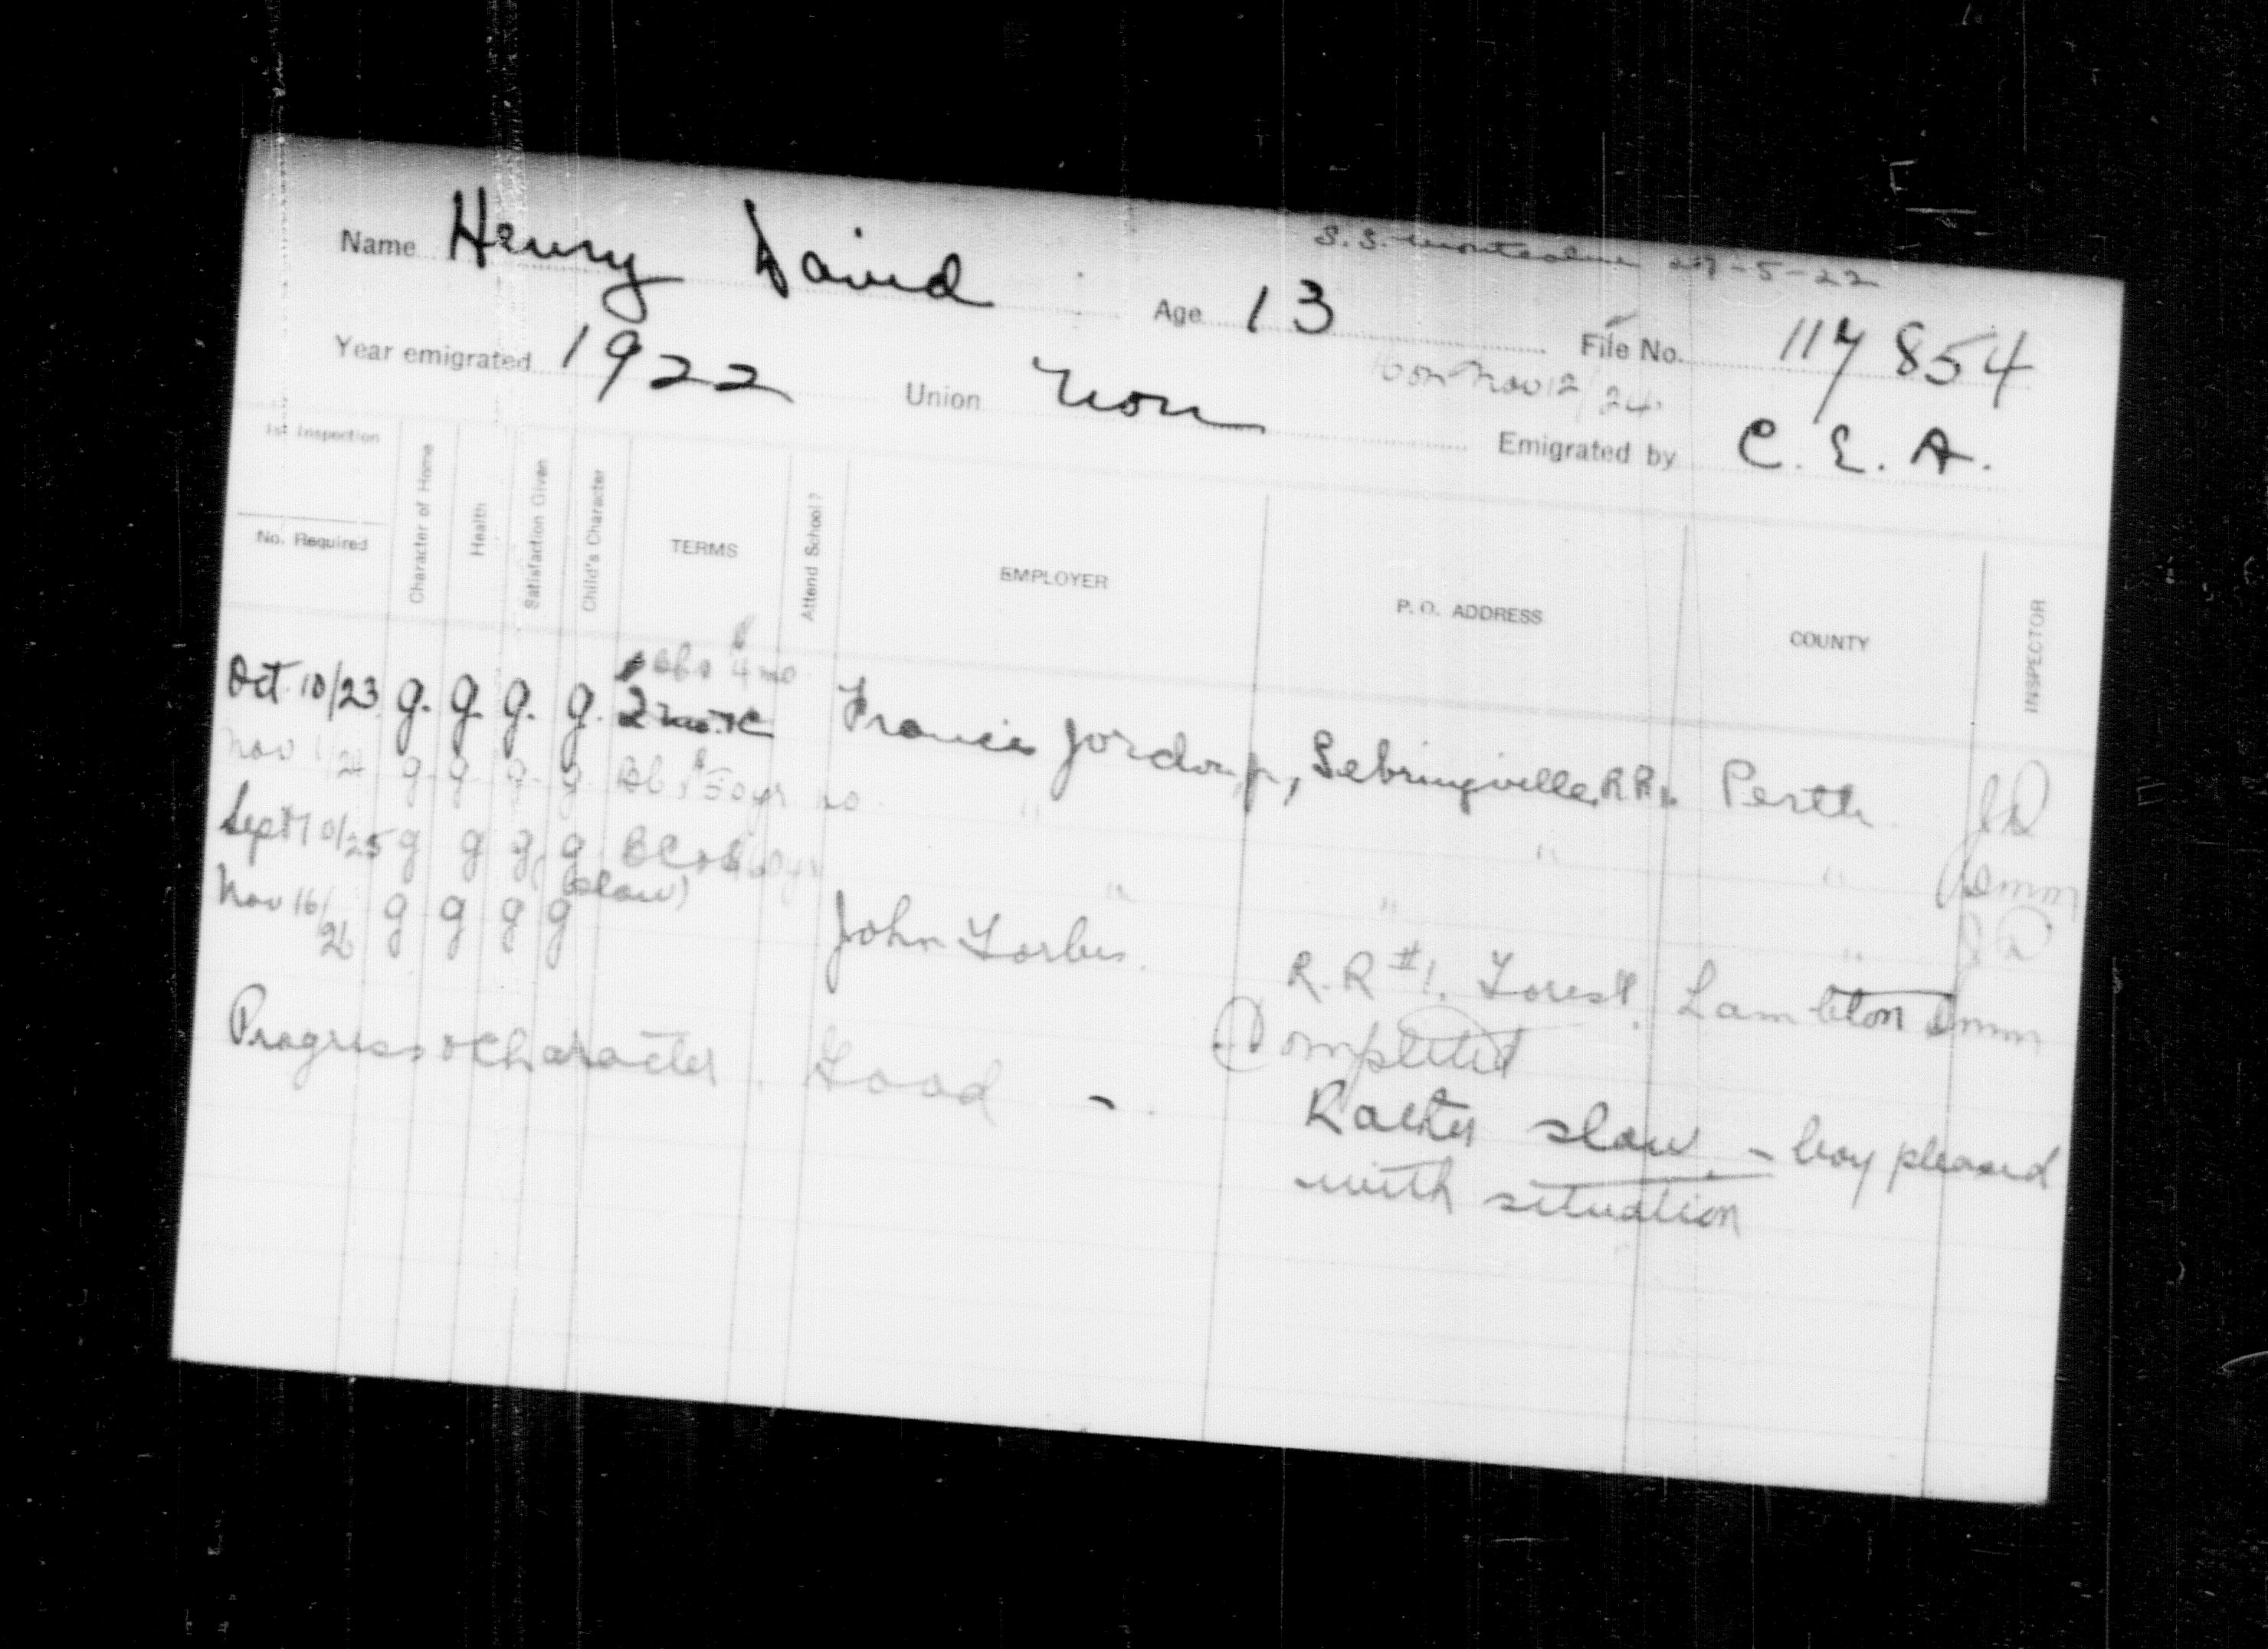 S.S. Montcalm 27-5-22
Name Henry David Age 13 File No. 117854
16 on Nov 12/24
Year emigrated 1922 Union Non Emigrated by C. E. A.
1st Inspection
No. Required
Character of Home
Health
Satisfaction Given
Child's Character
TERMS
Attend School?
EMPLOYER
P. O. ADDRESS
COUNTY
INSPECTOR
4 mo
Oct 10/23 g. g. g. g. Francis Jordan, Sebringville, RR1. Perth JD
Nov 1/24 g. g. g. g. no. " " " Dmm
Sept 10/25 g g g. g " " " JD
(slow)
Nov 16/26 g g g g John Forbes. R.R #1. Forest, Lambton Dmm
Completed
Progress & Character. Good -
Rather slow. - boy pleased
with situation